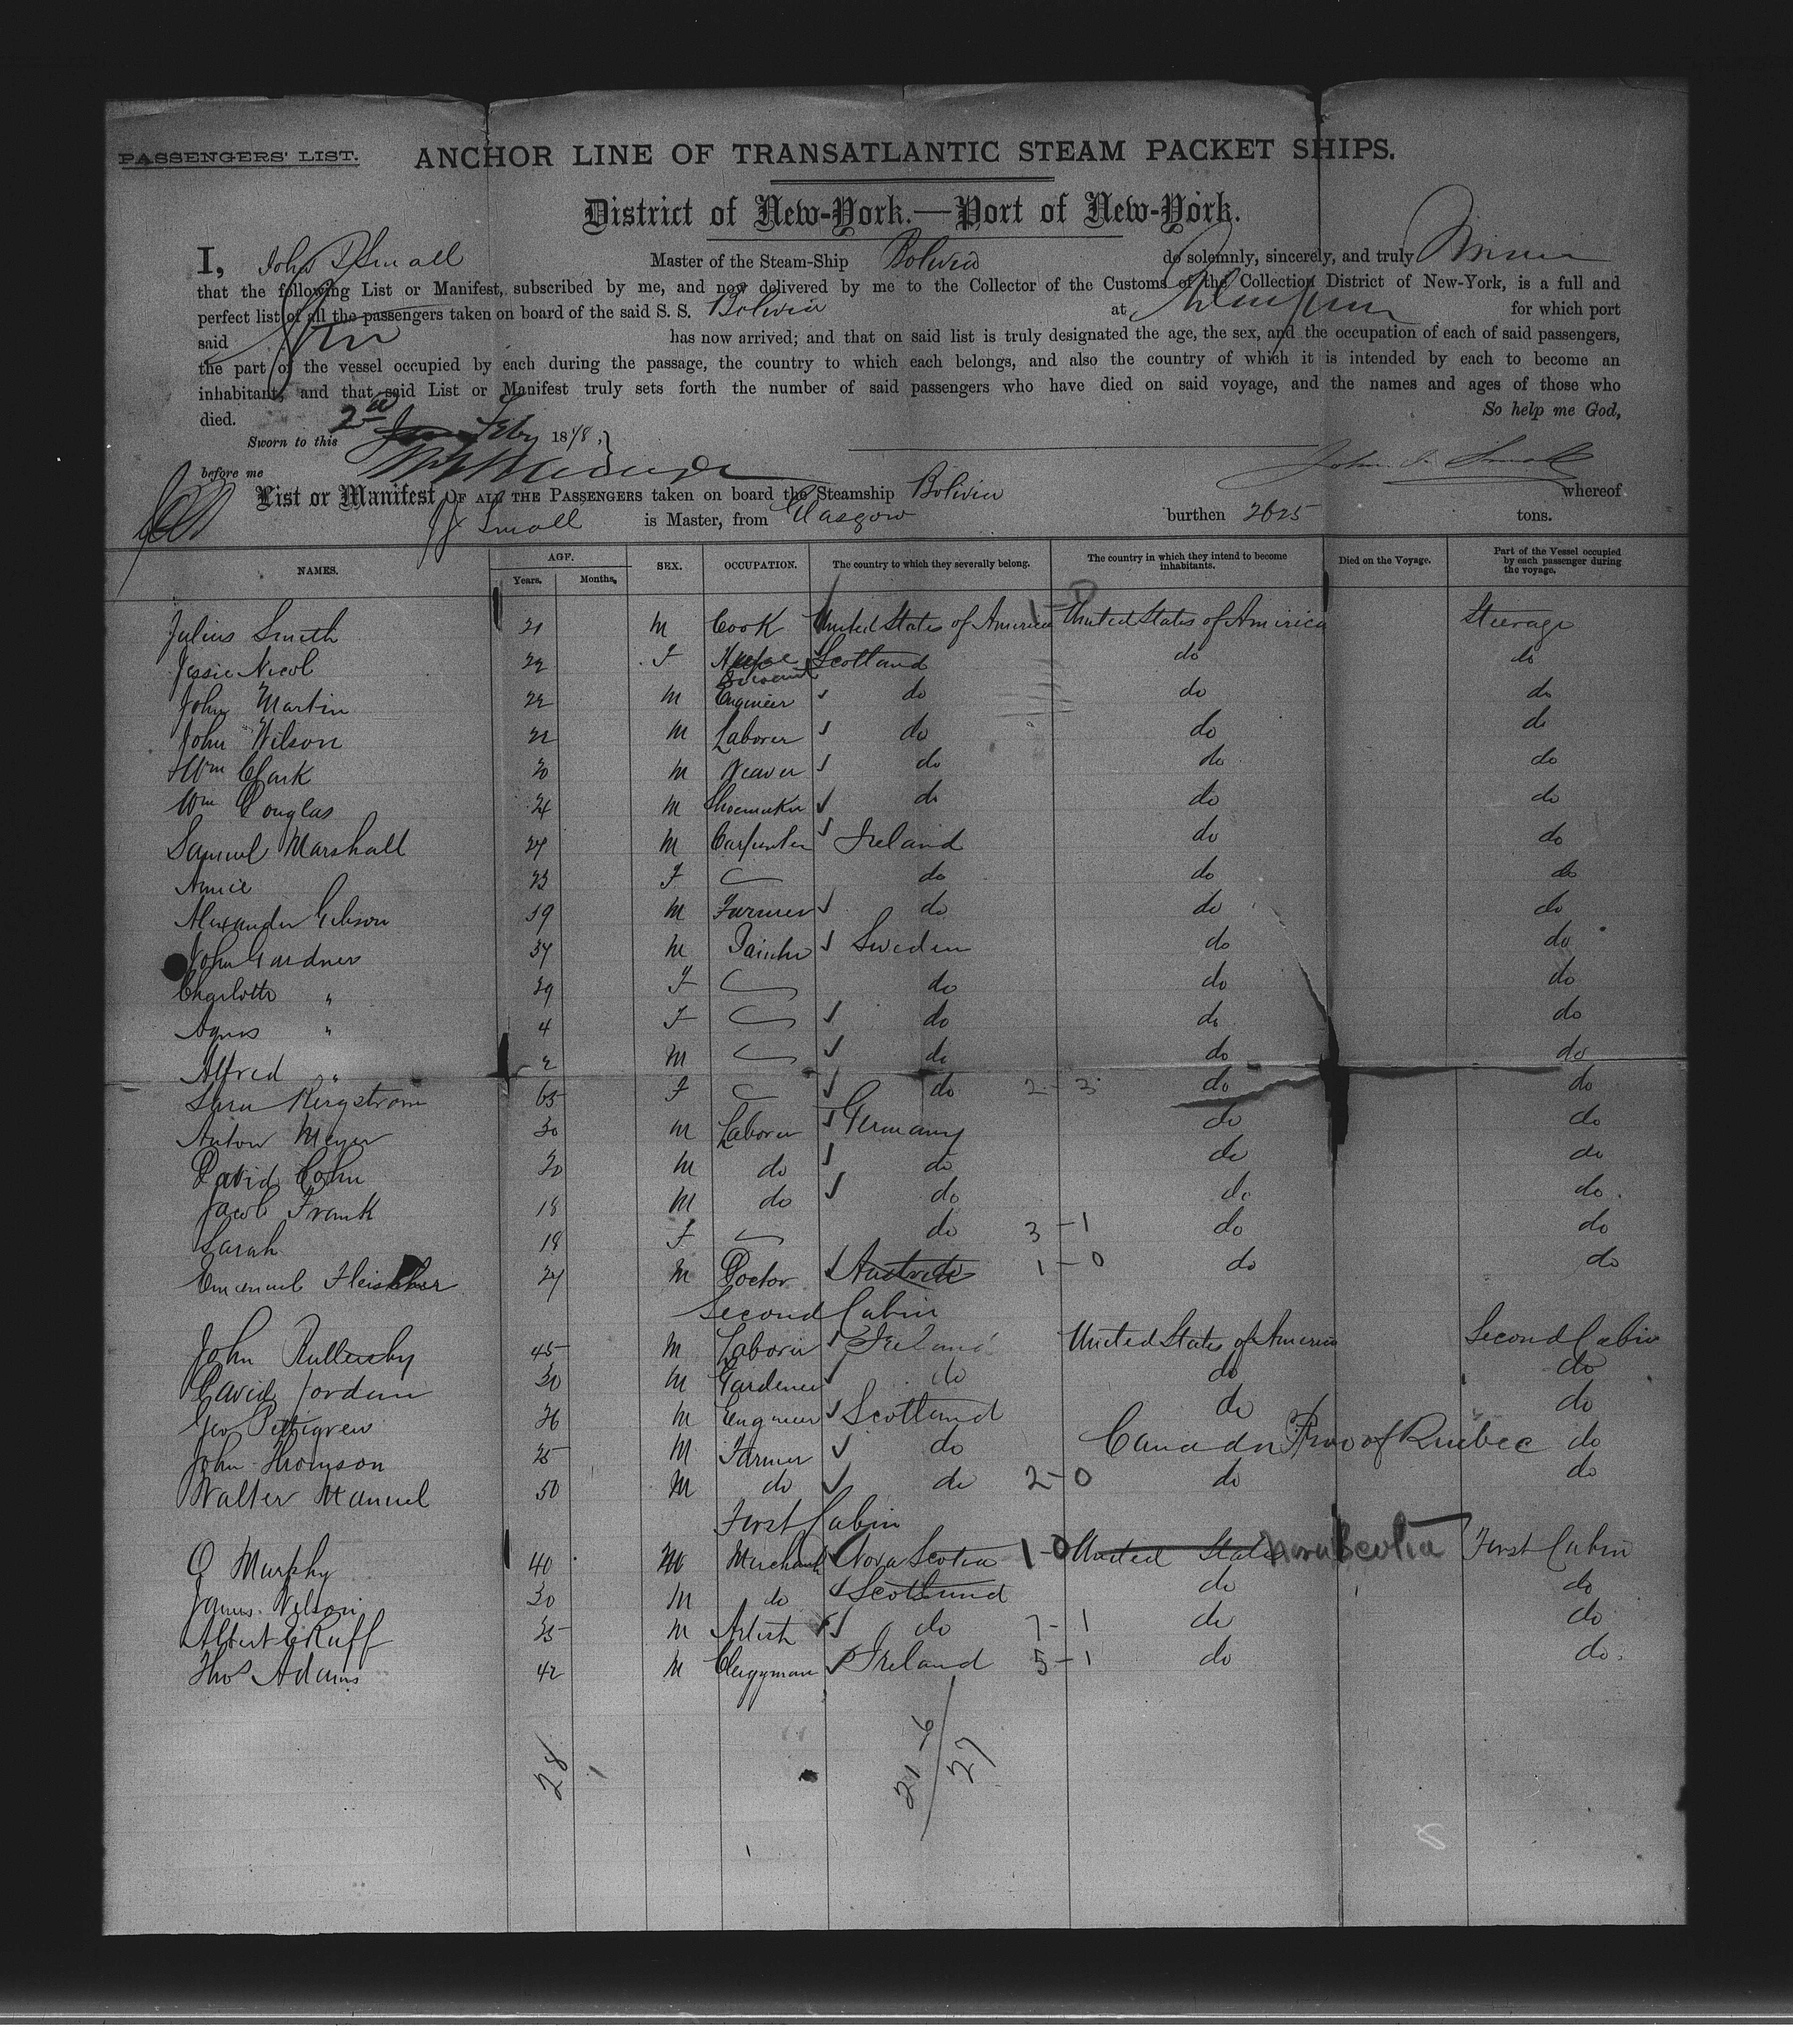 PASSENGERS' LIST.
ANCHOR LINE OF TRANSATLANTIC STEAM PACKET SHIPS.
District of New-York.—Port of New-York.
I, John Small Master of the Steam-Ship Bolivia do solemnly, sincerely, and truly
that the following List or Manifest, subscribed by me, and now delivered by me to the Collector of the Customs of the Collection District of New-York, is a full and
perfect list of all the passengers taken on board of the said S. S. Bolivia at for which port
said has now arrived; and that on said list is truly designated the age, the sex, and the occupation of each of said passengers,
the part of the vessel occupied by each during the passage, the country to which each belongs, and also the country of which it is intended by each to become an
inhabitant; and that said List or Manifest truly sets forth the number of said passengers who have died on said voyage, and the names and ages of those who
died. So help me God,
Sworn to this 2nd Feby 1878,
before me John Small
List or Manifest OF ALL THE PASSENGERS taken on board the Steamship Bolivia whereof
J Small is Master, from Glasgow burthen 2625 tons.
NAMES. AGE. Years. Months. SEX. OCCUPATION. The country to which they severally belong. The country in which they intend to become inhabitants. Died on the Voyage. Part of the Vessel occupied by each passenger during the voyage.
Julius Smith 21 M Cook United States of America 1-0 United States of America Steerage
Jessie Nicol 22 F Servant Scotland do do
John Martin 22 M Engineer do do do
John Wilson 22 M Laborer do do do
Wm Clark 20 M Weaver do do do
Wm Douglas 24 M Shoemaker do do do
Samuel Marshall 27 M Carpenter Ireland do do
Annie 23 F do do do
Alexander Gibson 19 M Farmer do do do
John Gardner 37 M Painter Sweden do do
Charlotte " 39 F do do do
Agnes " 4 F do do do
Alfred " 2 M do do do
Sara Bergstrom 65 F do 2-3 do do
Anton Meyer 30 M Laborer Germany do do
David Cohn 20 M do do do do
Jacob Frank 18 M do do do do
Sarah 18 F do 3-1 do do
Emanuel Fleischer 27 M Doctor Austria 1-0 do do
Second Cabin
John 45 M Laborer Ireland United States of America Second Cabin
David Jordan 30 M Gardener do do do
Geo Pettigrew 26 M Engineer Scotland do do
John Thomson 25 M Farmer do Canada Prov of Quebec do
Walter Manuel 50 M do do 2-0 do do
First Cabin
O Murphy 40 M Merchant Nova Scotia 1-0 United States Nova Scotia First Cabin
James Wilson 30 M do Scotland do do
Albert E Ruff 35 M Artist do 7-1 do do
Thos Adams 42 M Clergyman Ireland 5-1 do do
28
21 6
27